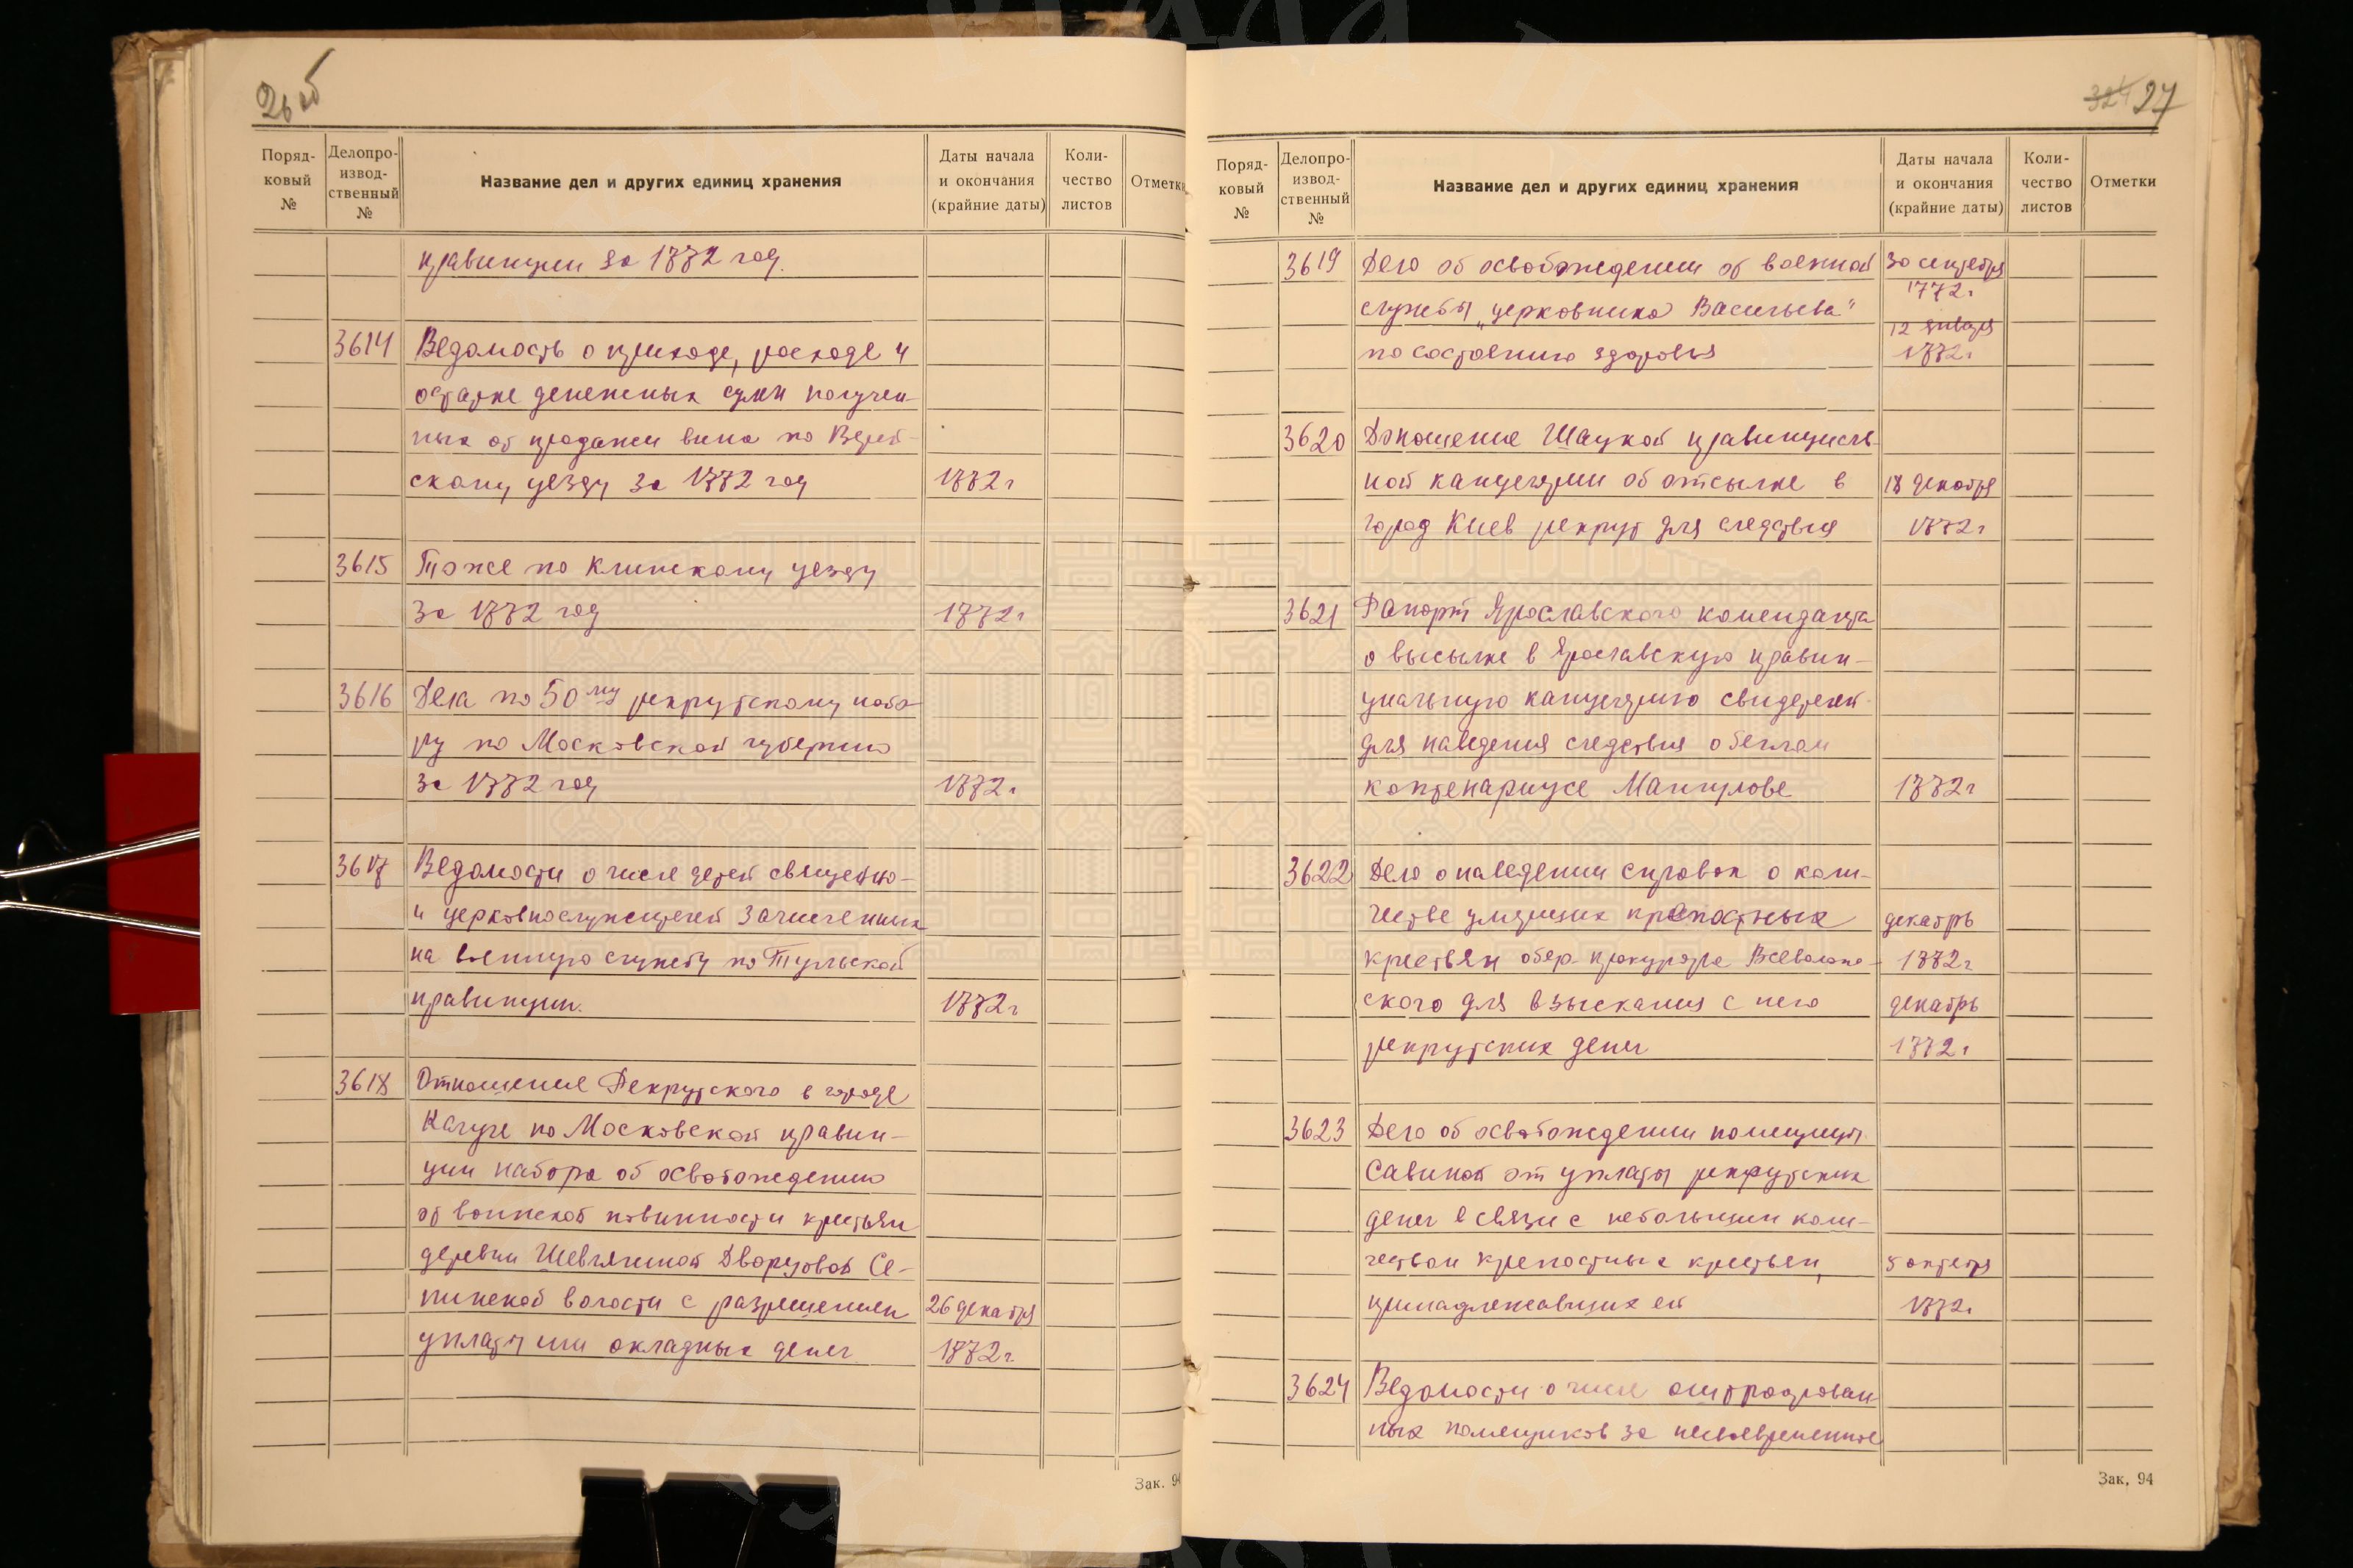 26 об
Поряд-
ковый
№
Делопро-
извод-
ственный
№
Название дел и других единиц хранения
Даты начала
и окончания
(крайние даты)
Коли-
чество
листов
Отметки
правинции за 1772 год.
3614 Ведомость о приходе, расходе и
остатке денежных сумм получен-
ных от продажи вина по Верей-
скому уезду за 1772 год 1772 г
3615 Тоже по Клинскому уезду
за 1772 год 1772 г
3616 Дела по 50му рекрутскому набо-
ру по Московской губернию
за 1772 год 1772 г.
3617 Ведомости о числе детей священно-
и церковнослужителей зачисленных
на военную службу по Тульской
правинции. 1772 г
3618 Отношение Рекрутского в городе
Калуге по Московской правин-
ции набора об освобождению
от воинской повинности крестьян
деревни Шевлягиной Дворцовой Се-
линской волости с разрешением 26 декабря
уплаты ими окладных денег 1772 г.
Зак. 94
324 27
Поряд-
ковый
№
Делопро-
извод-
ственный
№
Название дел и других единиц хранения
Даты начала
и окончания
(крайние даты)
Коли-
чество
листов
Отметки
3619 Дело об освобождении от военной 30 сентября
1772 г.
службы „церковника Васильева"
12 января
по состоянию здоровья 1772 г
3620 Доношение Шацкой правинциаль-
ной канцелярии об отсылке в 18 декабря
город Киев рекрут для следствия 1772 г
3621 Рапорт Ярославского коменданта
о высылке в Ярославскую правин-
циальную канцелярию свидетелей
для наведения следствия о беглом
коптенариусе Манцулове 1772 г
3622 Дело о наведении справок о коли-
честве умерших крепостных декабрь
крестьян обер-прокурора Всеволож- 1772 г
ского для взыскания с него декабрь
рекрутских денег 1772 г
3623 Дело об освобождении помещицы
Савиной от уплаты рекрутских
денег в связи с небольшим коли-
чеством крепостных крестьян, 5 октября
принадлежавших ей 1772 г.
3624 Ведомости о числе оштрафован-
ных помещиков за несвоевременное
Зак. 94